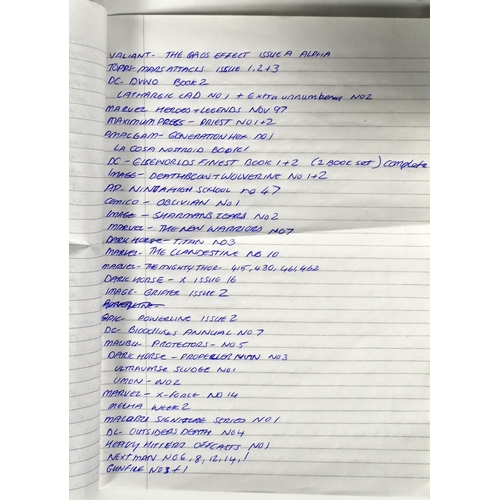 VALIANT - THE CAOS EFFECT ISSUE A ALPHA
TOPPS - MARS ATTACKS ISSUE 1,2+3
DC - BOOK 2
LATHARGIC LAD NO1 + Extra unnumbered NO2
MARVEL HEROES + LEGENDS NOV 97
MAXIMUM PRESS - PRIEST NO1+2
AMALGAM - GENERATION HEX NO1
LA COSA NOSTROID BOOK 1
DC - ELSEWORLDS FINEST BOOK 1+2 (2 BOOK SET) complete
IMAGE - DEATHBLOW + WOLVERINE NO 1+2
AP - NINJA HIGH SCHOOL NO 47
COMICO - OBLIVIAN NO1
IMAGE - SHAMANS TEARS NO2
MARVEL - THE NEW WARRIORS NO7
DARK HORSE - TITAN NO3
MARVEL - THE CLANDESTINE NO. 10
MARVEL - THE MIGHTY THOR - 415, 430, 461, 462
DARK HORSE - X ISSUE 16
IMAGE - GRIFTER ISSUE 2
EPIC - POWERLINE ISSUE 2
DC - BLOODLINES ANNUAL NO.7
MALIBU - PROTECTORS - NO5
DARK HORSE - PROPELLER MAN NO3
ULTRAVERSE SLUDGE NO1
UNION - NO2
MARVEL - X-FORCE NO 14
MECHA WEEK 2
MALIBU SIGNATURE SERIES NO1
DC - OUTSIDERS DEATH NO4
HEAVY HITTERZ OFFCASTS NO1
NEXT MAN NO.6, 8, 12, 14, 1
GUNFIRE NO3+1